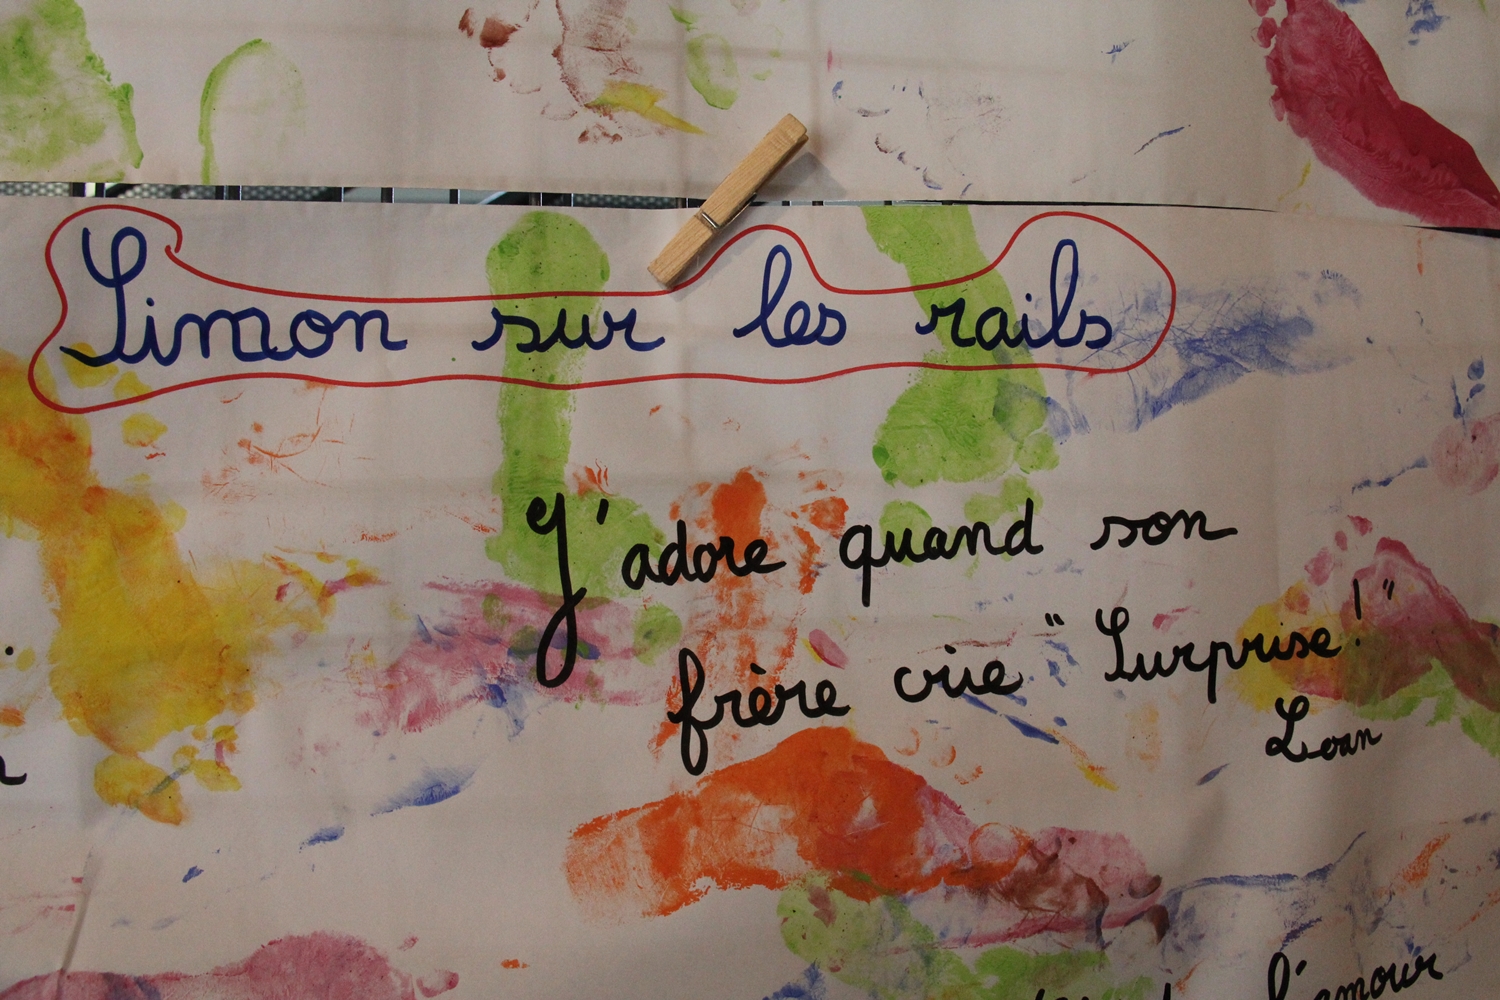 Simon sur les rails
J'adore quand son
frère crie "Surprise!"
Loan
l'amour